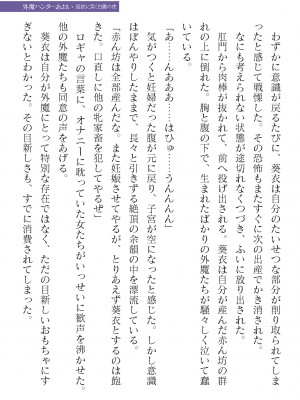 外魔ハンターあおい
わずかに意識が戻るたびに、葵衣は自分のたいせつな部分が削り取られてしま
ったと感じて戦慄した。その恐怖もまたすぐに次の出産でかき消される。
なにも考えられない状態が途切れなくつづき、ふいに放り出された。
肛門から肉棒が抜かれて、前へ投げ出される。葵衣は自分が産んだ赤ん坊の群
れの上に倒れた。胸と腹の下で、生まれたばかりの外魔たちが騒々しく泣いて蠢
いている。
「あ……んあああ……はひゅ……うんんんん」
気がつくと妊婦だった腹が元に戻り、子宮が空になったと感じた。しかし意識
はぼんやりしたままで、長々と引きずる絶頂の余韻の中を漂流している。
「赤ん坊は全部産んだな。また妊娠させてやるが、とりあえず葵衣とするのは飽
きた。口直しに他の牝家畜を犯してやるぜ」
ロギャの言葉に、オナニーに耽っていた女たちがいっせいに歓声を沸かせた。
他の外魔たちも同意の声をあげる。
葵衣は自分が外魔にとって特別な存在ではなく、ただの目新しいおもちゃにす
ぎないとわかった。その目新しさも、すでに消費されてしまった。